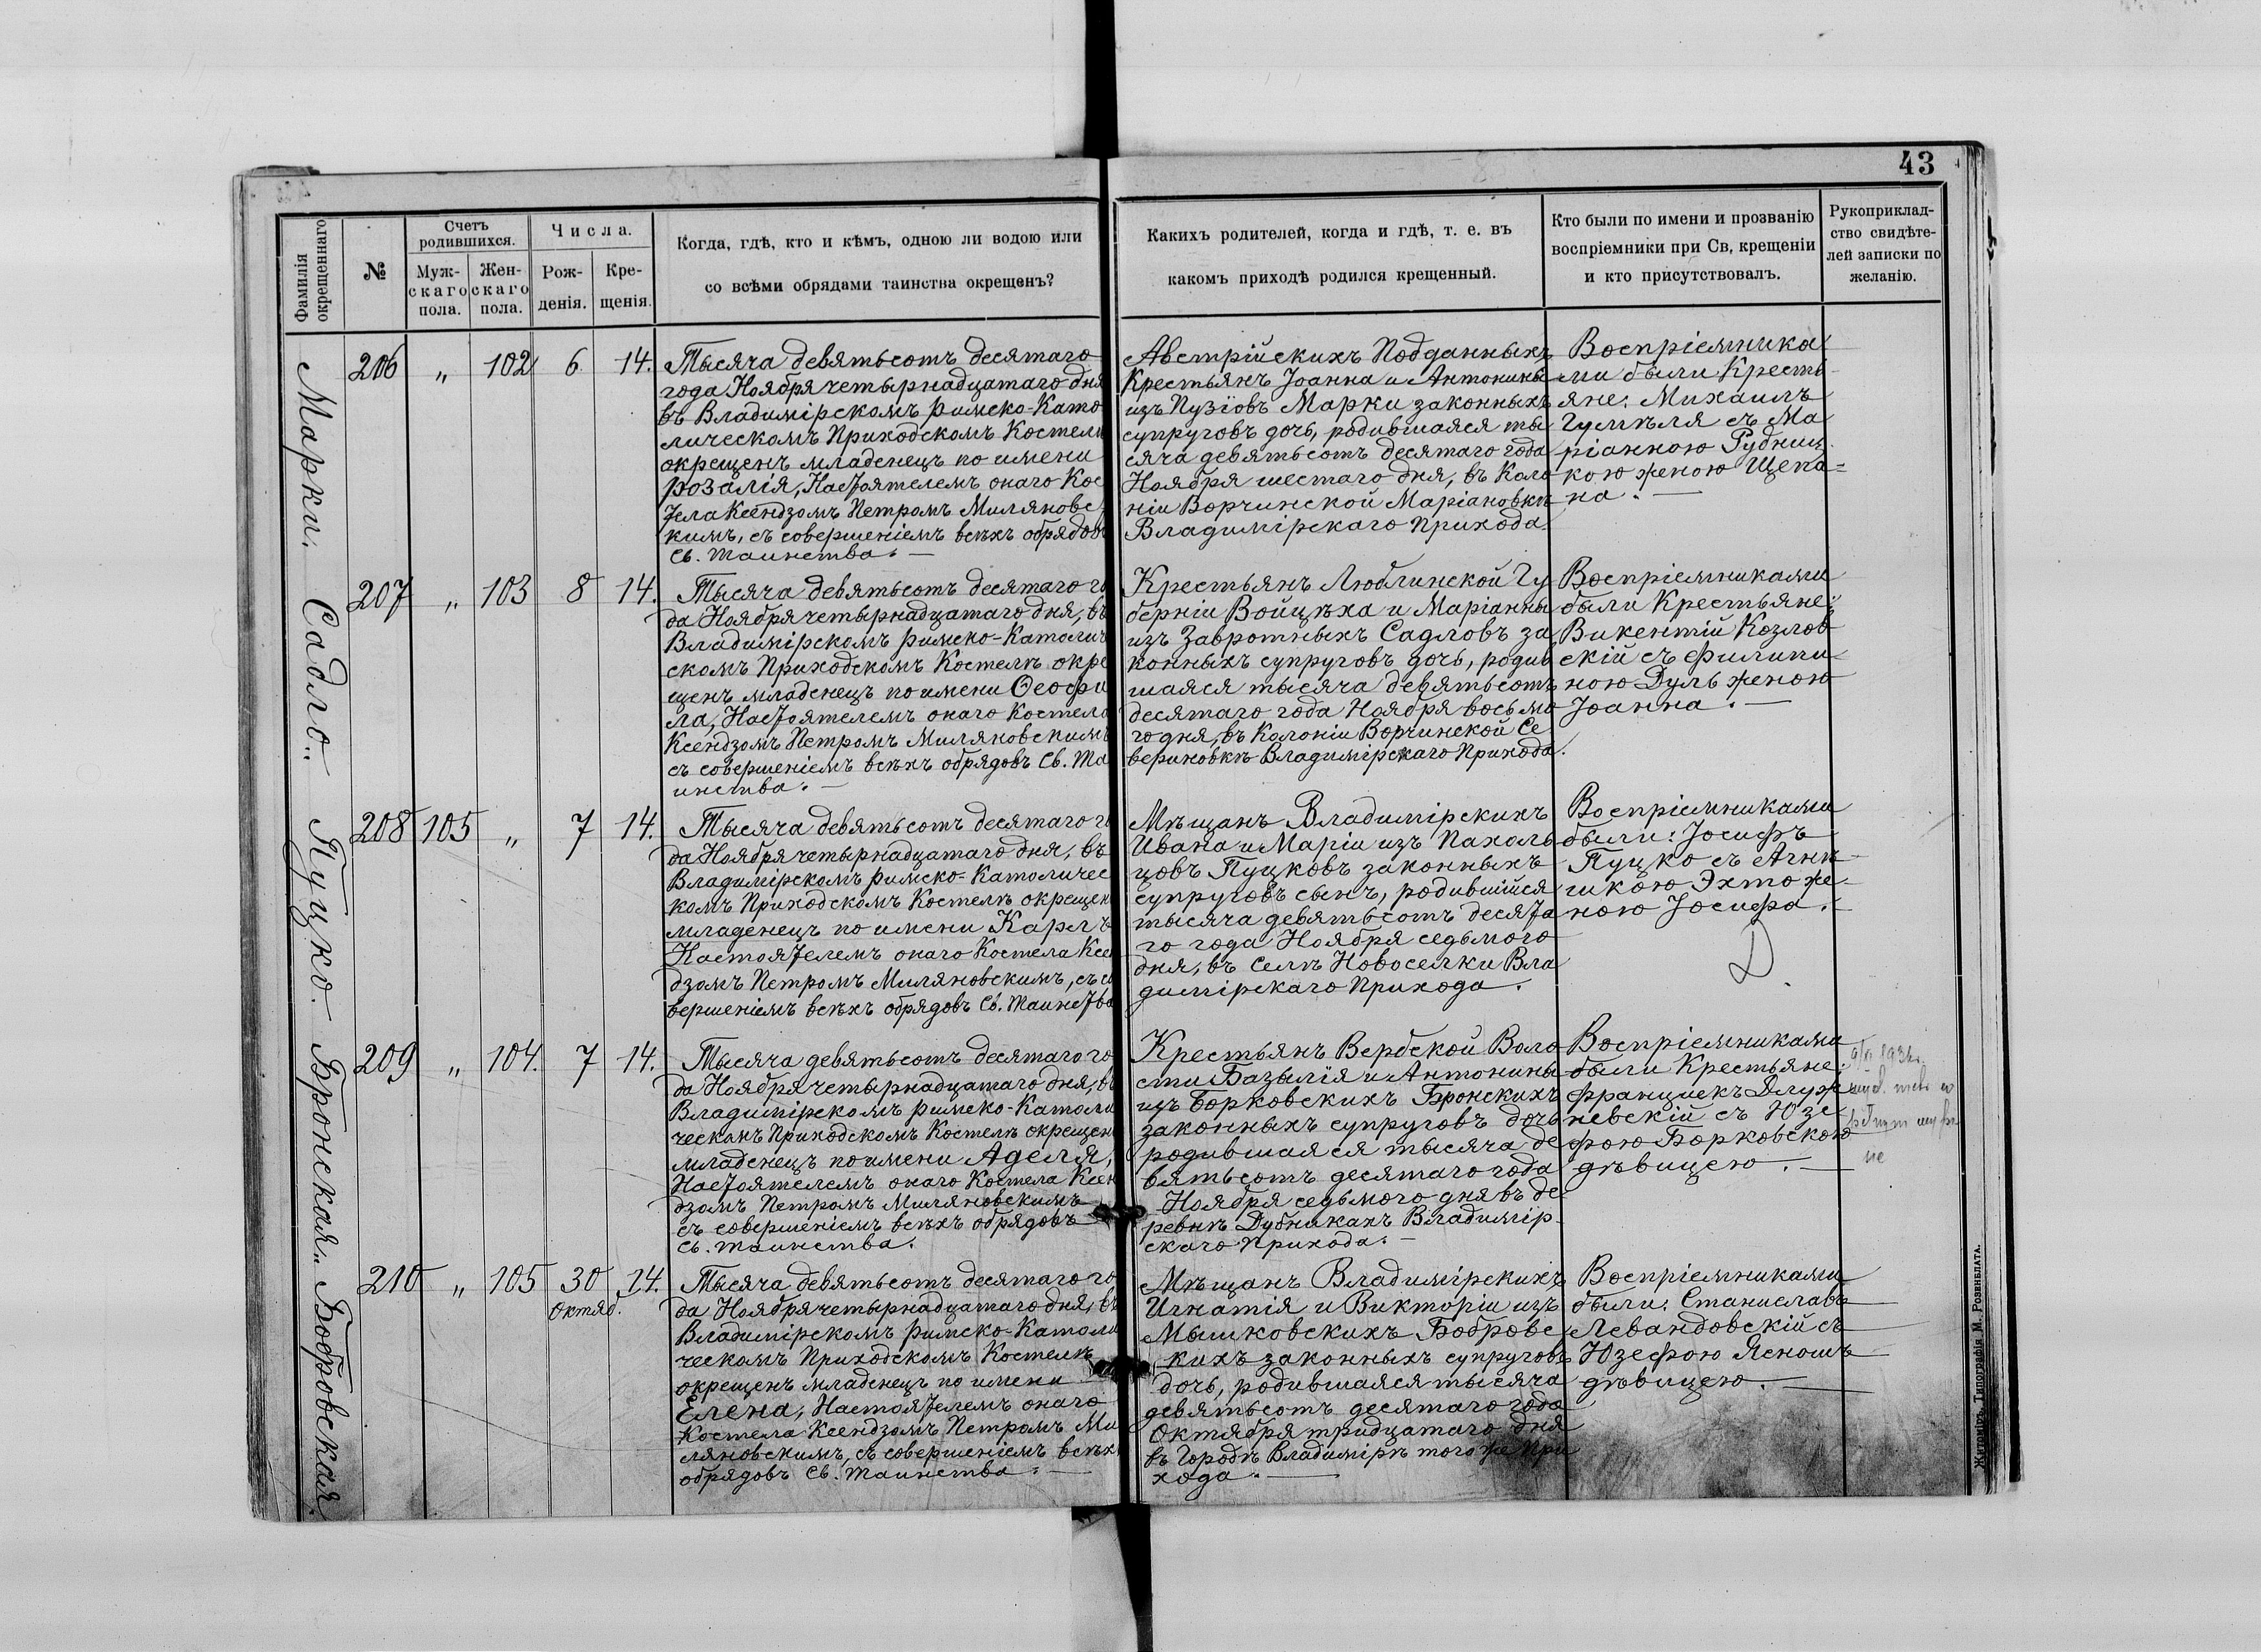 43
Фамилія окрещеннаго
№
Счетъ родившихся.
Муж-
скаго
пола.
Жен-
скаго
пола.
Числа.
Рож-
денія.
Кре-
щенія.
Когда, гдѣ, кто и кѣмъ, одною ли водою или
со всѣми обрядами таинства окрещенъ?
Какихъ родителей, когда и гдѣ, т. е. въ
какомъ приходѣ родился крещенный.
Кто были по имени и прозванію
воспріемники при Св, крещеніи
и кто присутствовалъ.
Рукоприклад-
ство свидѣте-
лей записки по
желанію.
Марки.
206 „ 102 6 14.
Тысяча девятьсотъ десятаго
года Ноября четырнадцатаго дня
въ Владимірскомъ Римско-Като
лическомъ Приходскомъ Костелѣ
окрещенъ младенецъ по имени
Розалія, Настоятелемъ онаго Кос
тела Ксендзомъ Петромъ Миляновс
кимъ, съ совершеніемъ всѣхъ обрядовъ
Св. Таинства. —
Австрійскихъ Подданныхъ
Крестьянъ Іоанна и Антонины
изъ Пузіовъ Марки законныхъ
супруговъ дочь, родившаяся ты
сяча девятьсотъ десятаго года
Ноября шестаго дня, въ Коло
ніи Ворчинской Маріановкѣ
Владимірскаго Прихода.
Воспріемника
ми были Кресть
яне: Михаилъ
съ Ма
ріанною Рудниц
кою женою Щепа=
на. —
Садло.
207 „ 103 8 14.
Тысяча девятьсотъ десятаго го
да Ноября четырнадцатаго дня, въ
Владимірскомъ Римско-Католич
скомъ Приходскомъ Костелѣ окре
щенъ младенецъ по имени Ѳеофи
ла, Настоятелемъ онаго Костела
Ксендзомъ Петромъ Миляновскимъ
съ совершеніемъ всѣхъ обрядовъ Св. Та
инства. —
Крестьянъ Люблинской Гу
берніи Войцѣха и Маріанны
изъ Завротныхъ Садловъ за
конныхъ супруговъ дочь, родив
шаяся тысяча девятьсотъ
десятаго года Ноября восьма
го дня, въ Колоніи Ворчинской Се
вериновкѣ Владимірскаго Прихода.
Воспріемниками
были Крестьяне:
Викентій Козлов
скій съ Филипи=
ною Дуль женою
Іоанна. —
Пуцко.
208 105 „ 7 14.
Тысяча девятьсотъ десятаго го
да Ноября четырнадцатаго дня, въ
Владимірскомъ Римско-Католичес
комъ Приходскомъ Костелѣ окрещен
младенецъ по имени Карлъ
Настоятелемъ онаго Костела Ксен
дзомъ Петромъ Миляновскимъ, съ со
вершеніемъ всѣхъ обрядовъ Св. Таинства
Мѣщанъ Владимірскихъ
Ивана и Маріи изъ Пахоль
цовъ Пуцковъ законныхъ
супруговъ сынъ, родившійся
тысяча девятьсотъ десята
го года Ноября седьмого
дня, въ Селѣ Новоселки Вла
димірскаго Прихода.
Воспріемниками
были: Іосифъ
Пуцко съ Агнѣ
шкою Эхто же
ною Іосифа. —
Бронская.
209 „ 104. 7 14.
Тысяча девятьсотъ десятаго го
да Ноября четырнадцатаго дня, въ
Владимірскомъ Римско-Католи
ческомъ Приходскомъ Костелѣ окрещен
младенецъ по имени Аделя,
Настоятелемъ онаго Костела Ксен
дзомъ Петромъ Миляновскимъ
съ совершеніемъ всѣхъ обрядовъ
Св. Таинства.
Крестьянъ Вербской Воло
сти Базылія и Антонины
изъ Борковскихъ Бронскихъ
законныхъ супруговъ дочь
родившаяся тысяча де
вятьсотъ десятаго года
Ноября седьмого дня въ де
ревнѣ Дубникахъ Владимір
скаго Прихода. —
Воспріемниками
были Крестьяне:
Францискъ Длуж
невскій съ Юзе
фою Борковскою
дѣвицею. —
Бобровская.
210 „ 105 30 14.
Октяб.
Тысяча девятьсотъ десятаго го
да Ноября четырнадцатаго дня, въ
Владимірскомъ Римско-Католи
ческомъ Приходскомъ Костелѣ
окрещенъ младенецъ по имени
Елена, Настоятелемъ онаго
Костела Ксендзомъ Петромъ Ми
ляновскимъ, съ совершеніемъ всѣхъ
обрядовъ Св. Таинства. —
Мѣщанъ Владимірскихъ
Игнатія и Викторіи изъ
Мышковскихъ Бобровс
кихъ законныхъ супруговъ
дочь, родившаяся тысяча
девятьсотъ десятаго года
Октября тридцатаго дня
въ Городѣ Владимірѣ того же При
хода. —
Воспріемниками
были: Станиславъ
Левандовскій съ
Юзефою Яношъ
дѣвицею. —
Житоміръ, Типографія М. Розенблата.